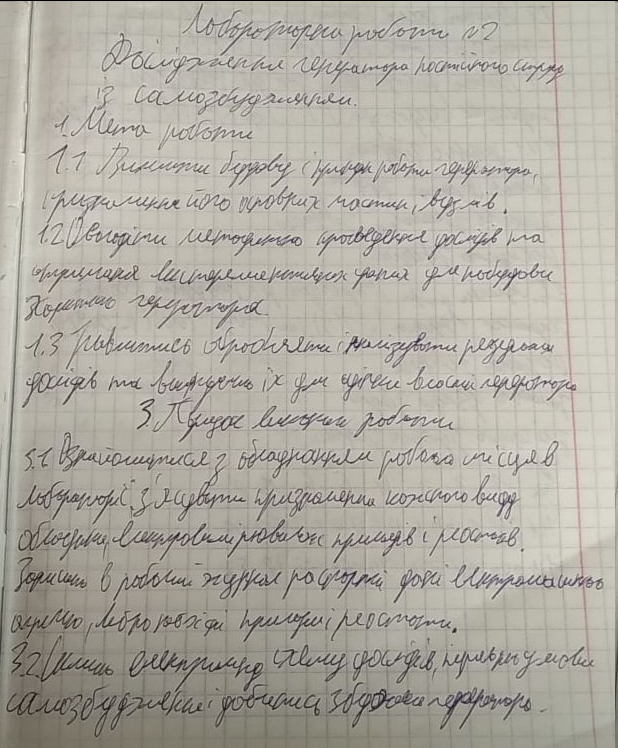 Лабораторна робота №2
Дослідження генератора постійного струму
із самозбудженням.
1. Мета роботи
1.1 Вивчити будову і принцип роботи генератора,
призначення його основних частин і вузлів.
1.2 Оволодіти методикою проведення дослідів та
отримання експериментальних даних для побудови
генератора
1.3 Навчитись обробляти і аналізувати результати
дослідів та їх для оцінки властив генератора
3. Порядок виконання роботи
3.1 Ознайомитися з обладнанням робочого місця в
лабораторії, з'ясувати призначення кожного виду
обладнання, електровимірювальн приладів і реостатів.
Записать в робочий журнал паспортні дані електромашинного
агрегату, приладів і реостати.
3.2 електричну схему дослідів, перевірить умови
самозбудження і добитись збудження генератора.